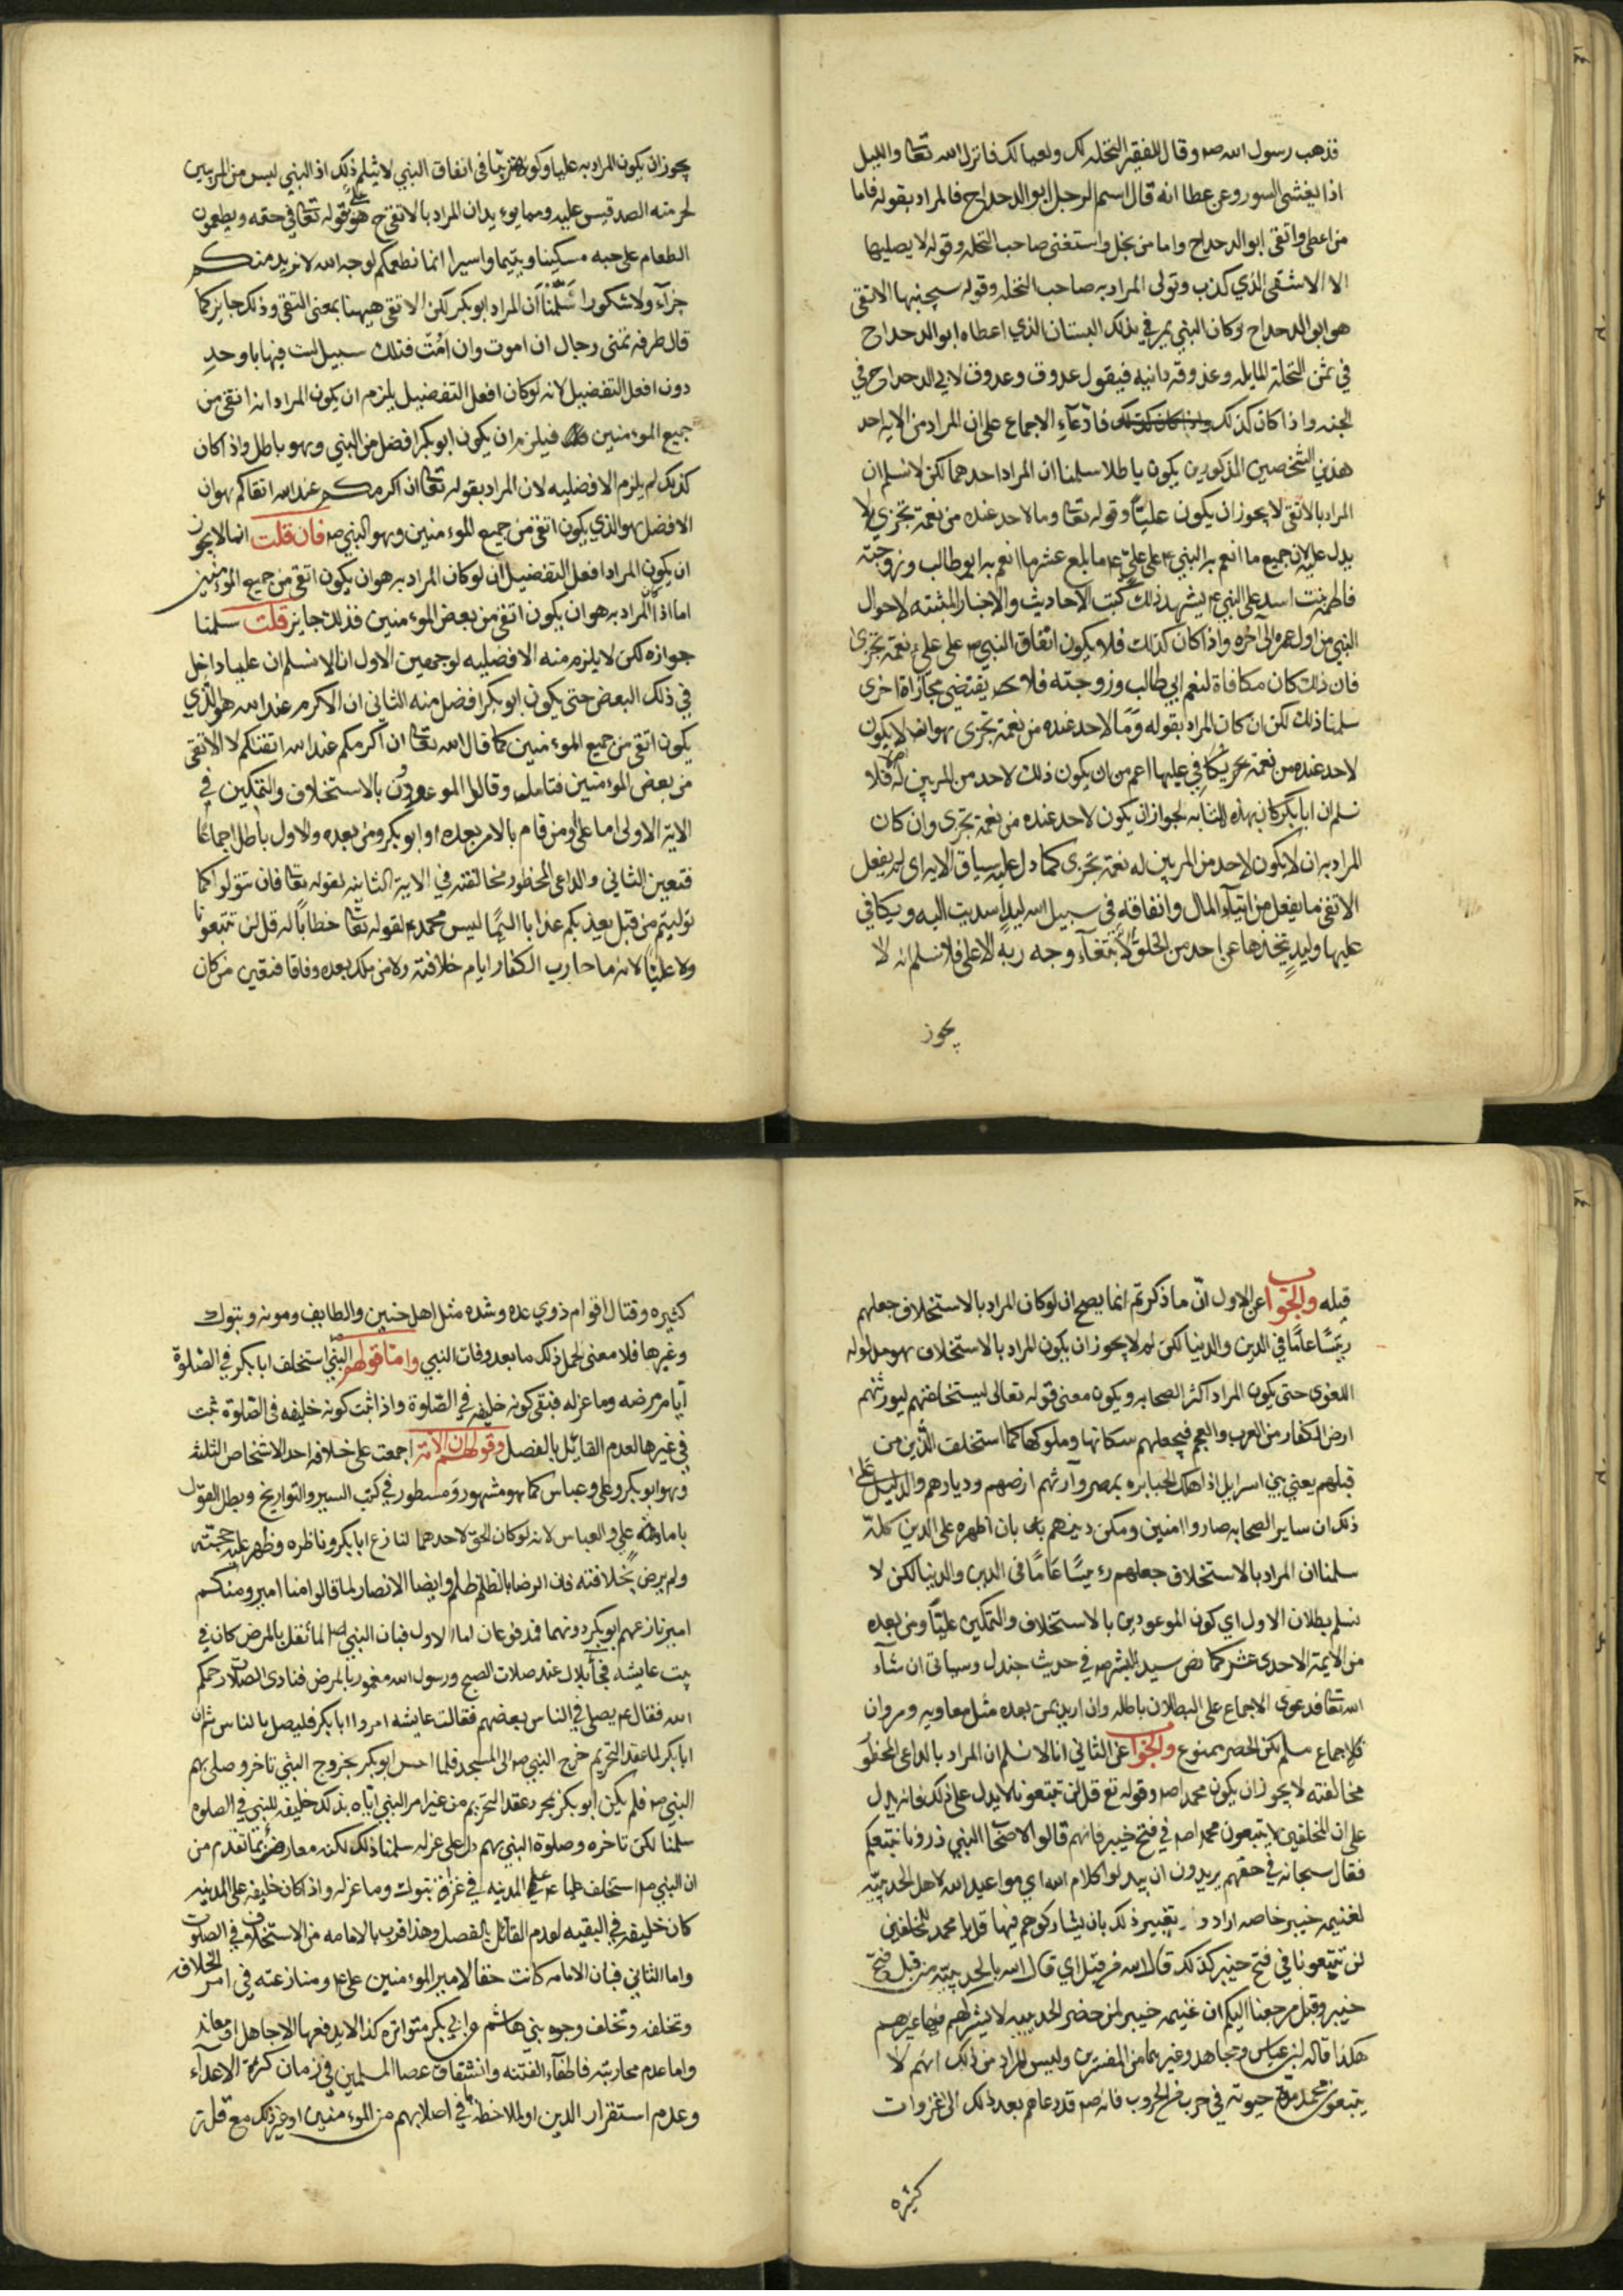 فذهب رسول الله صم وقال للفقير النخلة لك ولعيالك فانزل الله تعا والليل
اذا يغشى السور وعن عطا انه قال اسم الرجل ابو الدحداح فالمراد بقوله فاما
من اعطى واتقى ابو الدحداح واما من بخل واستغنى صاحب النخله وقوله لا يصليها
الا الاشقى الذي كذب وتولى المراد به صاحب النخله وقوله سيجنبها الاتقى
هو ابو الدحداح وكان النبي يمر في ذلك البستان الذي اعطاه ابو الدحداح
في ثمن النخلة المايله وعذوقه دانيه فيقول عذوق وعذوق لابي الدحداح في
الجنه واذا كان كذلك فادعاء الاجماع على ان المراد من الايه احد
هذين الشخصين المذكورين يكون باطلا سلمنا ان المراد احدهما لكن لا نسلم ان
المراد بالاتقى لا يجوز ان يكون عليّاً وقوله تعا وما لاحد عنده من نعمة تجزي لا
يدل عليه لان جميع ما انعم به النبي ع م على علي ع م ما بلغ عشر ما انعم به ابو طالب وزوجته
فاطمة بنت اسد على النبي ع م يشهد بذلك كتب الاحاديث والاخبار المثبته لاحوال
النبي من اول عمره الى آخره واذا كان كذلك فلا يكون انفاق النبي ص على علي نعمة تجزى
فان ذلك كان مكافاة لنعم ابي طالب وزوجته فلا يقتضي مجازاة اخرى
سلمنا ذلك لكن ان كان المراد بقوله وما لاحد عنده من نعمة تجزى هو انه لا يكون
لاحد عنده من نعمة تجزى يكافي عليها اعم من ان يكون ذلك لاحد من المربين له فلا
نسلم ان ابا بكر كان بهذه المثابه لجواز ان يكون لاحد عنده من نعمة تجزى وان كان
المراد به ان لا يكون لاحد من المربين له نعمة تجزى كما دل عليه سياق الايه اى لم يفعل
الاتقى ما يفعل من ايتاء المال وانفاقه في سبيل الله ليدٍ اسديت اليه ويكافي
عليها وليدٍ يتخذها عن احد من الخلق الا ابتغاء وجه ربه الاعلى فلا نسلم انه لا
يجوز
يجوز ان يكون المراد به عليا وكونه تربّيا فى انفاق النبي لا يثلم ذلك اذ النبي ليس من المربيين
لحرمته الصدقيس عليه ومما يويد ان المراد بالاتقى هو علي قوله تعا في حقه ويطعمون
الطعام على حبه مسكينا ويتيما واسيرا انما نطعمكم لوجه الله لا نريد منكم
جزآء ولا شكورا سَلّمْنا ان المراد ابو بكر لكن الاتقى ههنا بمعنى التقي وذلك جايز كما
قال طرفه تمنى رجال ان اموت وان امُت فتلك سبيل لست فيها باوحدِ
دون افعل التفضيل لانه لو كان افعل التفضيل يلزم ان يكون المراد انه اتقى من
جميع المومنين فيلزم ان يكون ابو بكر افضل من النبي وهو باطل واذ كان
كذلك لم يلزم الافضليه لان المراد بقوله تعا ان اكرمكم عند الله اتقاكم هو ان
الافضل هو الذي يكون اتقى من جميع المومنين وهو النبي ص فان قلت انما لا يجوز
ان يكون المراد افعل التفضيل ان لو كان المراد به هو ان يكون اتقى من جميع المؤمنين
اما اذا كان المراد به هو ان يكون اتقى من بعض المومنين فذلك جايز قلت سلمنا
جوازه لكن لا يلزم منه الافضليه لوجهين الاول انا لا نسلم ان عليا داخل
في ذلك البعض حتى يكون ابو بكر افضل منه الثاني ان الاكرم عند الله هو الذي
يكون اتقى من جميع المومنين كما قال الله تعا ان اكرمكم عند الله اتقيكم لا الاتقى
من بعض المؤمنين فتامل وقالوا الموعودون بالاستخلاف والتمكين في
الاية الاولى اما على ومن قام بالامر بعده او ابو بكر ومن بعده والاول باطل اجماعًا
فتعين الثاني والداعي المحظور مخالفته في الاية الثانيه لقوله تعا فان تتولوا كما
توليتم من قبل يعذبكم عذابا اليمًا ليس محمد ع م لقوله تعا خطاباً له قل لن تتبعونا
ولا عليّاً لانه ما حارب الكفار ايام خلافته ولا من ملك بعده وفاقا فتعين من كان
قبله والجواب عن الاول انّ ما ذكرتم انما يصح ان لو كان المراد بالاستخلاف جعلهم
ريّسًا عامًا في الدين والدنيا لكن لم لا يجوز ان يكون المراد بالاستخلاف هو مدلوله
اللغوى حتى يكون المراد اكثر الصحابه ويكون معنى قوله تعالى ليستخلفنهم ليورثنهم
ارض الكفار من العرب والعجم فيجعلهم سكانها وملوكها كما استخلف الذين من
قبلهم يعني بني اسرايل اذا هلك الجبابره بمصر وآرثهم ارضهم وديارهم والدليل على
ذلك ان ساير الصحابه صاروا امنين ومكن دينهم بان اظهره على الدين كلّه
سلمنا ان المراد بالاستخلاف جعلهم رءيسًا عَامًا فى الدين والدنيا لكن لا
نسلم بطلان الاول اي كون الموعودين بالاستخلاف والتمكين عليّاً ومن بعده
من الايمة الاحدى عشر كما نص سيد البشر ص في حديث جندل وسياتي ان شآء
الله تعا فدعوى الاجماع على البطلان باطله وان اريد بمن بعده مثل معاويه ومروان
فالاجماع مسلم لكن الحصر ممنوع والجواب عن الثاني انا لا نسلم ان المراد بالداعي المحظور
مخالفته لا يجوز ان يكون محمدا ص وقوله تع قل لن تتبعونا لا يدل على ذلك فانه يدل
على ان المخلفين لا يتبعون محمدا ص في فتح خيبر فانهم قالوا لاصحاب النبي ذرونا نتبعكم
فقال سبحانه في حقهم يريدون ان يبدلوا كلام الله اي مواعيد الله لاهل الحديبيّه
لغنيمه خيبر خاصه ارادوا تغيير ذلك بان يشاركوهم فيها قل يا محمد للمخلفين
لن تتبعونا في فتح خيبر كذلك قال الله من قبل اي قال الله بالحديبيّة من قبل فتح
خيبر وقبل مرجعنا اليكم ان غنيمه خيبر لمن حضر الحديبيه لا يشركهم فيها غيرهم
هكذا قاله ابن عباس ومجاهد وغيرهما من المفسرين وليس المراد من ذلك انهم لا
يتبعون محمدا مدة حيوته في حرب من الحروب فانه ص قد دعاهم بعد ذلك الى غزوات
كثيره
كثيره وقتال اقوام ذوي عده وشده مثل اهل حنين والطايف وموته وتبوك
وغيرها فلا معنى لحمل ذلك ما بعد وفات النبي واما قولهم النبي استخلف ابا بكر في الصّلوة
ايّام مرضه وما عزله فبقى كونه خليفه في الصّلوة واذا ثبت كونه خليفه فى الصّلوة ثبت
في غيرها لعدم القائل بالفصل وقولهم ان الامة اجمعت على خلافه احد الاشخاص الثلثه
وهو ابو بكر وعلي وعباس كما هو مشهور ومسطور في كتب السير والتواريخ وبطل القول
بامامة علي والعباس لانه لو كان الحق لاحدهما لنازع ابا بكر وناظره وظهر عليه حجته
ولم يرض بخلافته فان الرضا بالظلم ظلم وايضا الانصار لما قالوا منا امير ومنكم
امير نازعهم ابو بكر دونهما فمدفوعان اما الاول فبان النبي ص لما ثقل بالمرض كان في
بيت عايشه فجآ بلال عند صلات الصبح ورسول الله مغمور بالمرض فنادى الصلاة رحمكم
الله فقال ع م يصلي في الناس بعضهم فقالت عايشه امروا ابا بكر فليصل بالناس ثم ان
ابا بكر لما عقد التحريم خرج النبي ص الى المسجد فلما احس ابو بكر بخروج النبي تاخر وصلى بهم
النبي ص فلم يكن ابو بكر بمجرد عقد التحريم من غير امر النبي ايّاه بذلك خليفه للنبي في الصلوه
سلمنا لكن تاخره وصلوة النبي بهم دل على عزله سلمنا ذلك لكنه معارض بما تقدم من
ان النبي ص استخلف عليا ع م على المدينه في غزاة تبوك وما عزله واذ كان خليفه على المدينه
كان خليفه في البقيه لعدم القائل بالفصل وهذا اقرب بالامامه من الاستخلاف في الصلوت
واما الثاني فبان الامامه كانت حقا لامير المومنين علي ع م ومنازعته في امر الخلافه
وتخلفه وتخلف وجوه بني هاشم عن ابي بكر متواتره كذا لا يدفعها الا جاهل او معاند
واما عدم محاربته فاطفآء الفتنه وانشقاق عصا المسلمين في زمان كثرة الاعدآء
وعدم استقرار الدين او لملاحظة ما في اصلابهم من المومنين او غير ذلك مع قلة